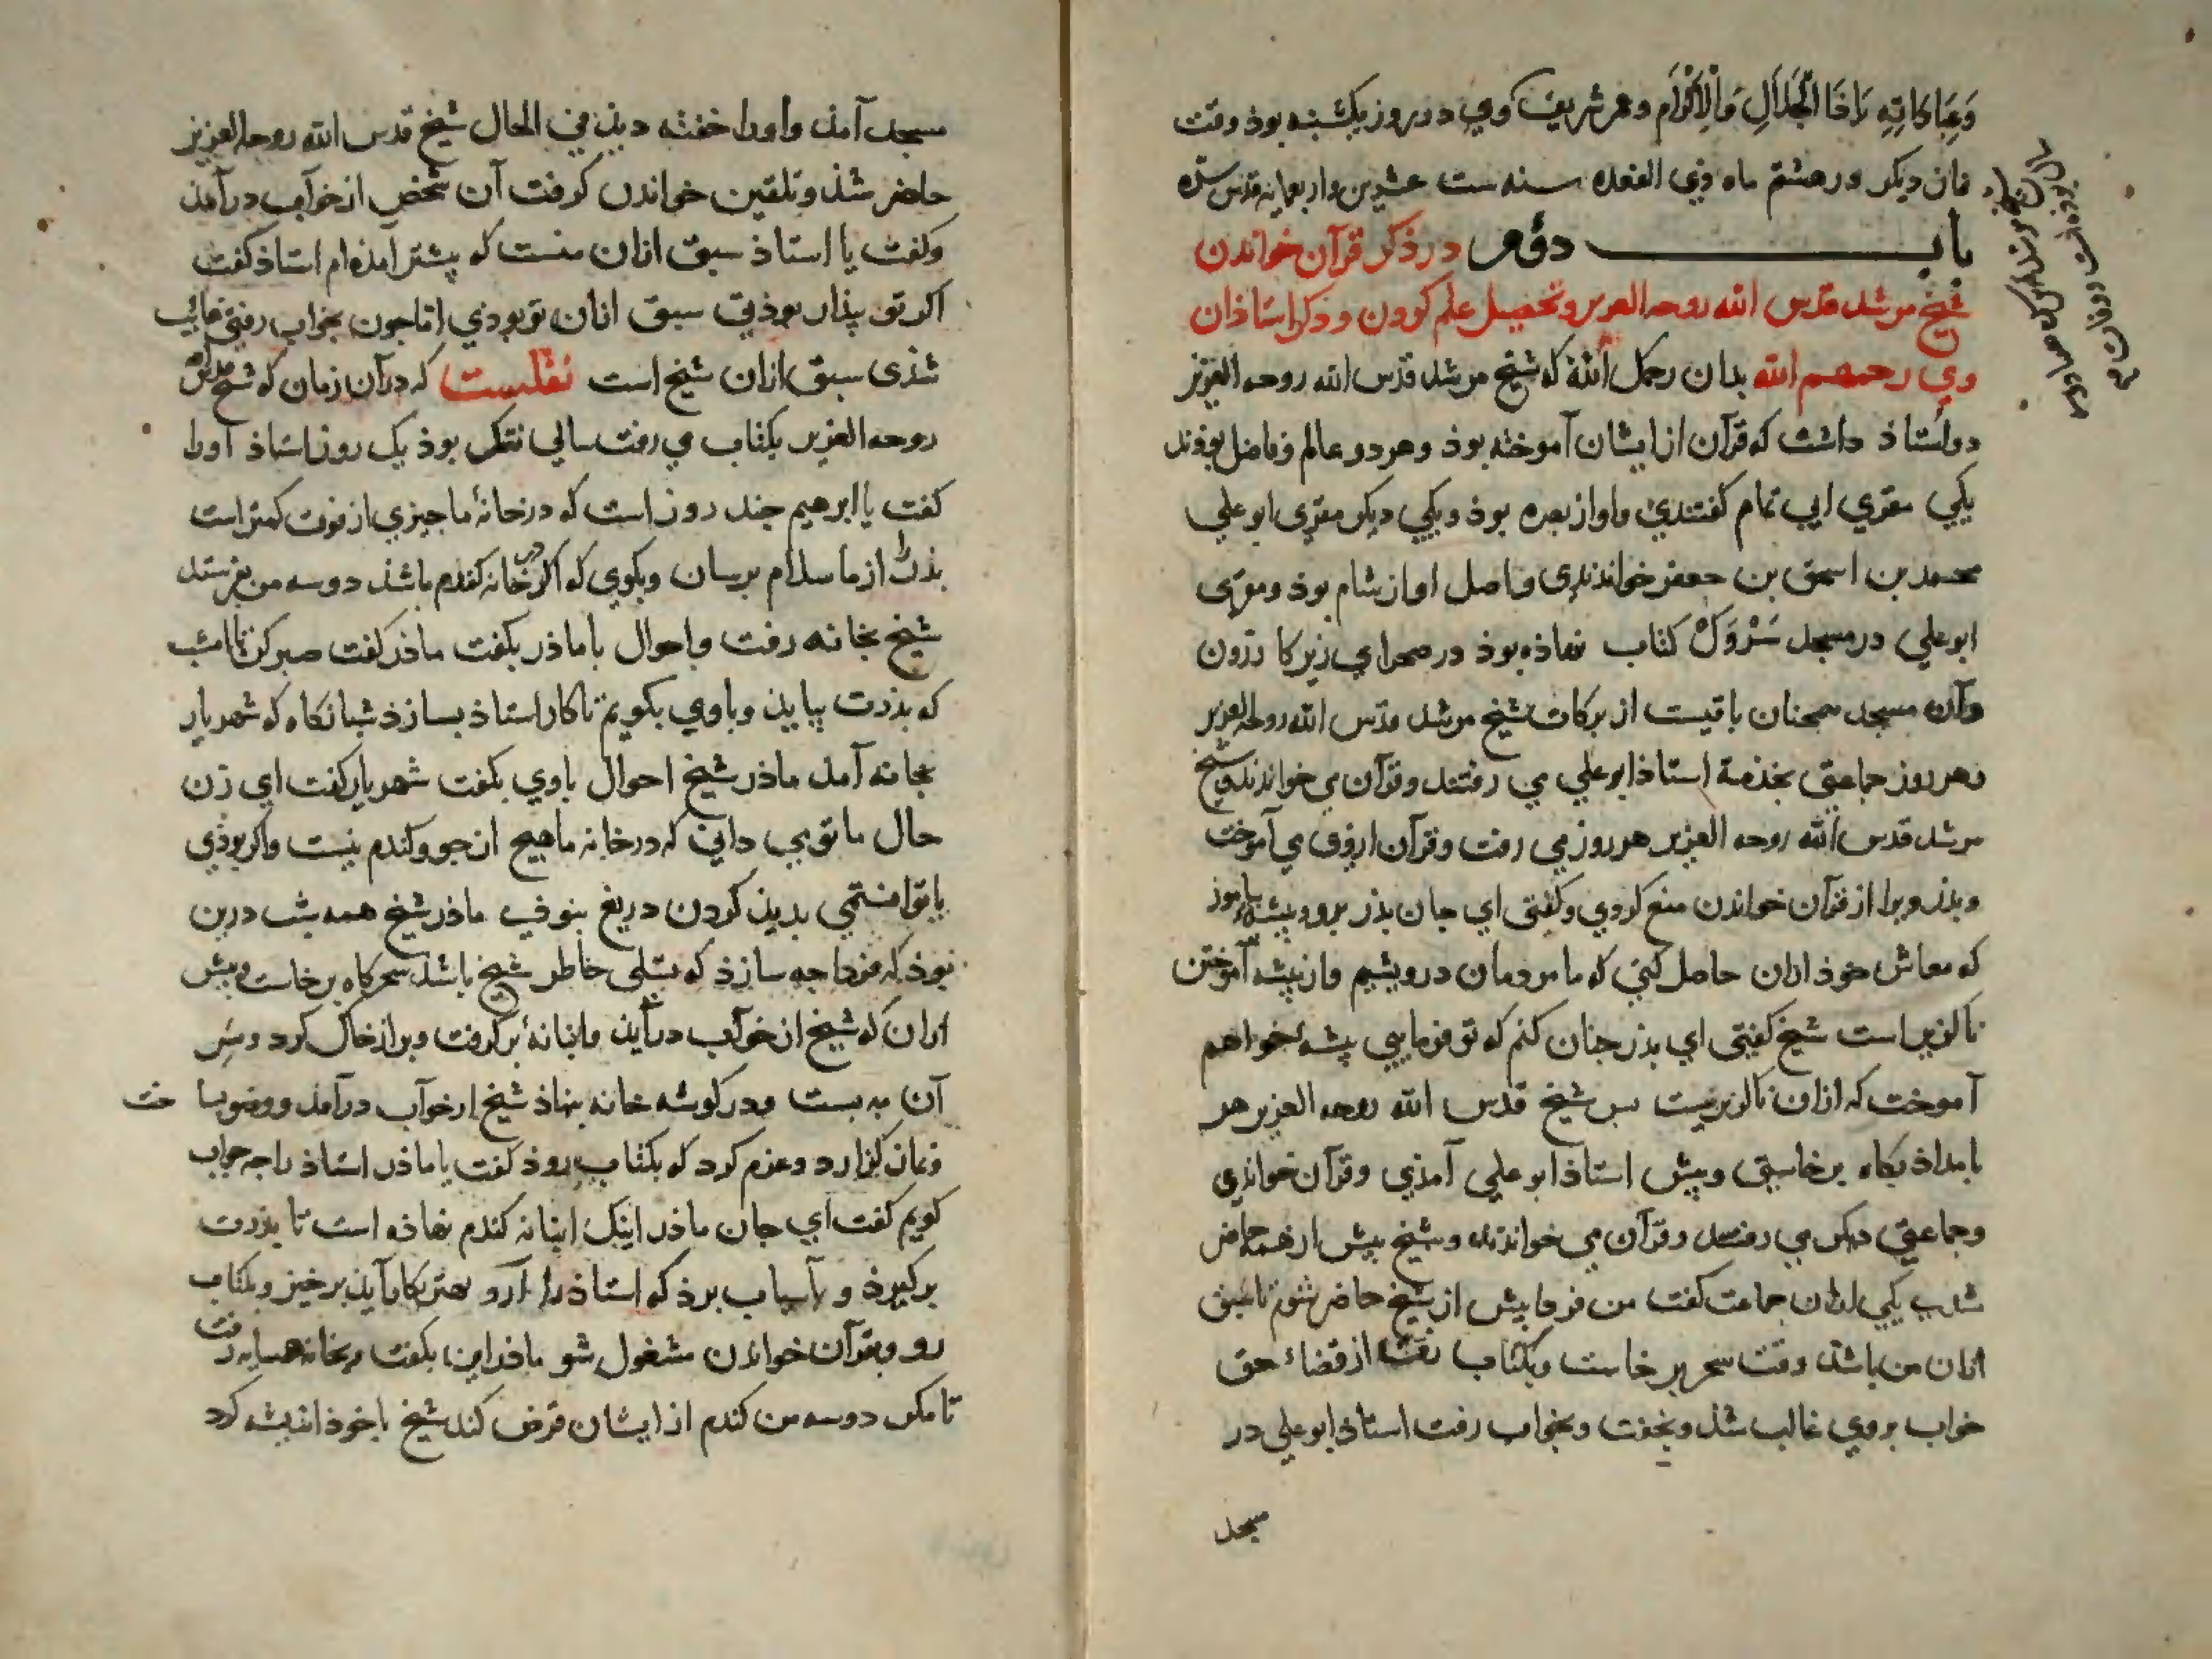 وَعِبَادَاتِهِ يَا ذَا الْجَلَالِ وَالْاِكْرَام وعمر شریف وی در روز یکشنبه بوذ وقت
نماز دیکر در هشتم ماه ذی القعده سنه ست عشرین واربعمایه قدس سره
باب دوم در ذکر قرآن خواندن
شیخ مرشد قدس الله روحه العزیز وتحصیل علم کردن وذکر استاذان
وی رحمهم الله بدان رحمک الله که شیخ مرشد قدس الله روحه العزیز
دو استاذ داشت که قرآن از ایشان آموخته بوذ وهر دو عالم وفاضل بوذند
یکی مقری ابی تمام کفتندی واو از بصره بوذ ویکی دیکر مقری ابو علی
محمد بن اسحق بن جعفر خواندندی واصل او از شام بوذ ومقری
ابو علی در مسجد سَرْوَکْ کتاب نهاذه بوذ در صحرای زیر کازرون
وآن مسجد همچنان باقیست از برکات شیخ مرشد قدس الله روحه العزیز
وهر روز جماعتی بخذمة استاذ ابو علی می رفتند وقرآن می خواندند وشیخ
مرشد قدس الله روحه العزیز هر روز می رفت وقرآن ازوی می آموخت
وبذر ویرا از قرآن خواندن منع کردی وکفتی ای جان بذر برو وپیشه بیاموز
که معاش خوذ ازان حاصل کنی که ما مردمان درویشیم واز پیشه آموختن
ناکزیر است شیخ کفتی ای بذر جنان کنم که تو فرمایی پیشهٔ خواهم
آموخت که ازان ناکزیر نیست بس شیخ قدس الله روحه العزیز هر
بامداذ بکاه برخاستی وپیش استاذ ابو علی آمذی وقرآن خواندی
وجماعتی دیکر می رفتند وقرآن می خواندند وشیخ پیش از همه حاضر
شدی یکی ازان جماعت کفت من فردا پیش از شیخ حاضر شوم تا سبق
ازان من باشذ وقت سحر برخاست وبکتاب رفت از قضاء حق
خواب بروی غالب شذ وبخفت وبخواب رفت استاذ ابو علی در
مسجد
مسجد آمذ واورا خفته دیذ فی الحال شیخ قدس الله روحه العزیز
حاضر شذ وتلقین خواندن کرفت آن شخص از خواب درآمذ
وکفت یا استاذ سبق ازان منست که پیشتر آمذه ام استاذ کفت
اکر تو بیذار بوذیی سبق ازان تو بوذی اما جون بخواب رفتی غایب
شذی سبق ازان شیخ است نقلست که در آن زمان که شیخ قدس الله
روحه العزیز بکتاب می رفت سالی تنک بوذ یک روز استاذ اورا
کفت یا ابرهیم جند روز است که در خانهٔ ما جیزی از قوت کمتر است
بذرت را از ما سلام برسان وبکوی که اکر در خانه کندم باشذ دو سه من بفرستد
شیخ بخانه رفت واحوال با ماذر بکفت ماذر کفت صبر کن تا امشب
که بذرت بیایذ وباوی بکویم تا کار استاذ بسازذ شبانکاه که شهریار
بخانه آمذ ماذر شیخ احوال باوی بکفت شهریار کفت ای زن
حال ما تو می دانی که در خانه ما هیج از جو وکندم نیست واکر بوذی
یا توانستمی بدین کردن دریغ نبوذی ماذر شیخ همه شب درین
بوذ که فردا جه سازذ که تسلی خاطر شیخ باشذ سحرکاه برخاست وپیش
ازان که شیخ از خواب درآیذ وانبانهٔ بر کرفت وبر از خاک کرد وسر
آن به بست ودر کوشه خانه بنهاذ شیخ از خواب درآمذ ووضو بساخت
ونماز بکزارد وعزم کرد که بکتاب روذ کفت یا ماذر استاذ را جه جواب
کویم کفت ای جان ماذر اینک انبانه کندم نهاذه است تا بذرت
برکیرذ وبآسیاب برذ که استاذ را آرد بهتر بکار آیذ برخیز وبکتاب
رو وبقرآن خواندن مشغول شو ماذر این بکفت وبخانه همسایه رفت
تا مکر دو سه من کندم از ایشان قرض کند شیخ با خوذ اندیشه کرد